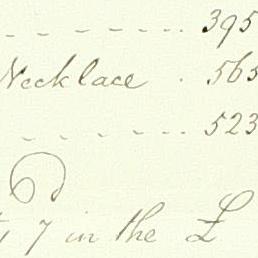 395
Necklace 565
523
7 in the £